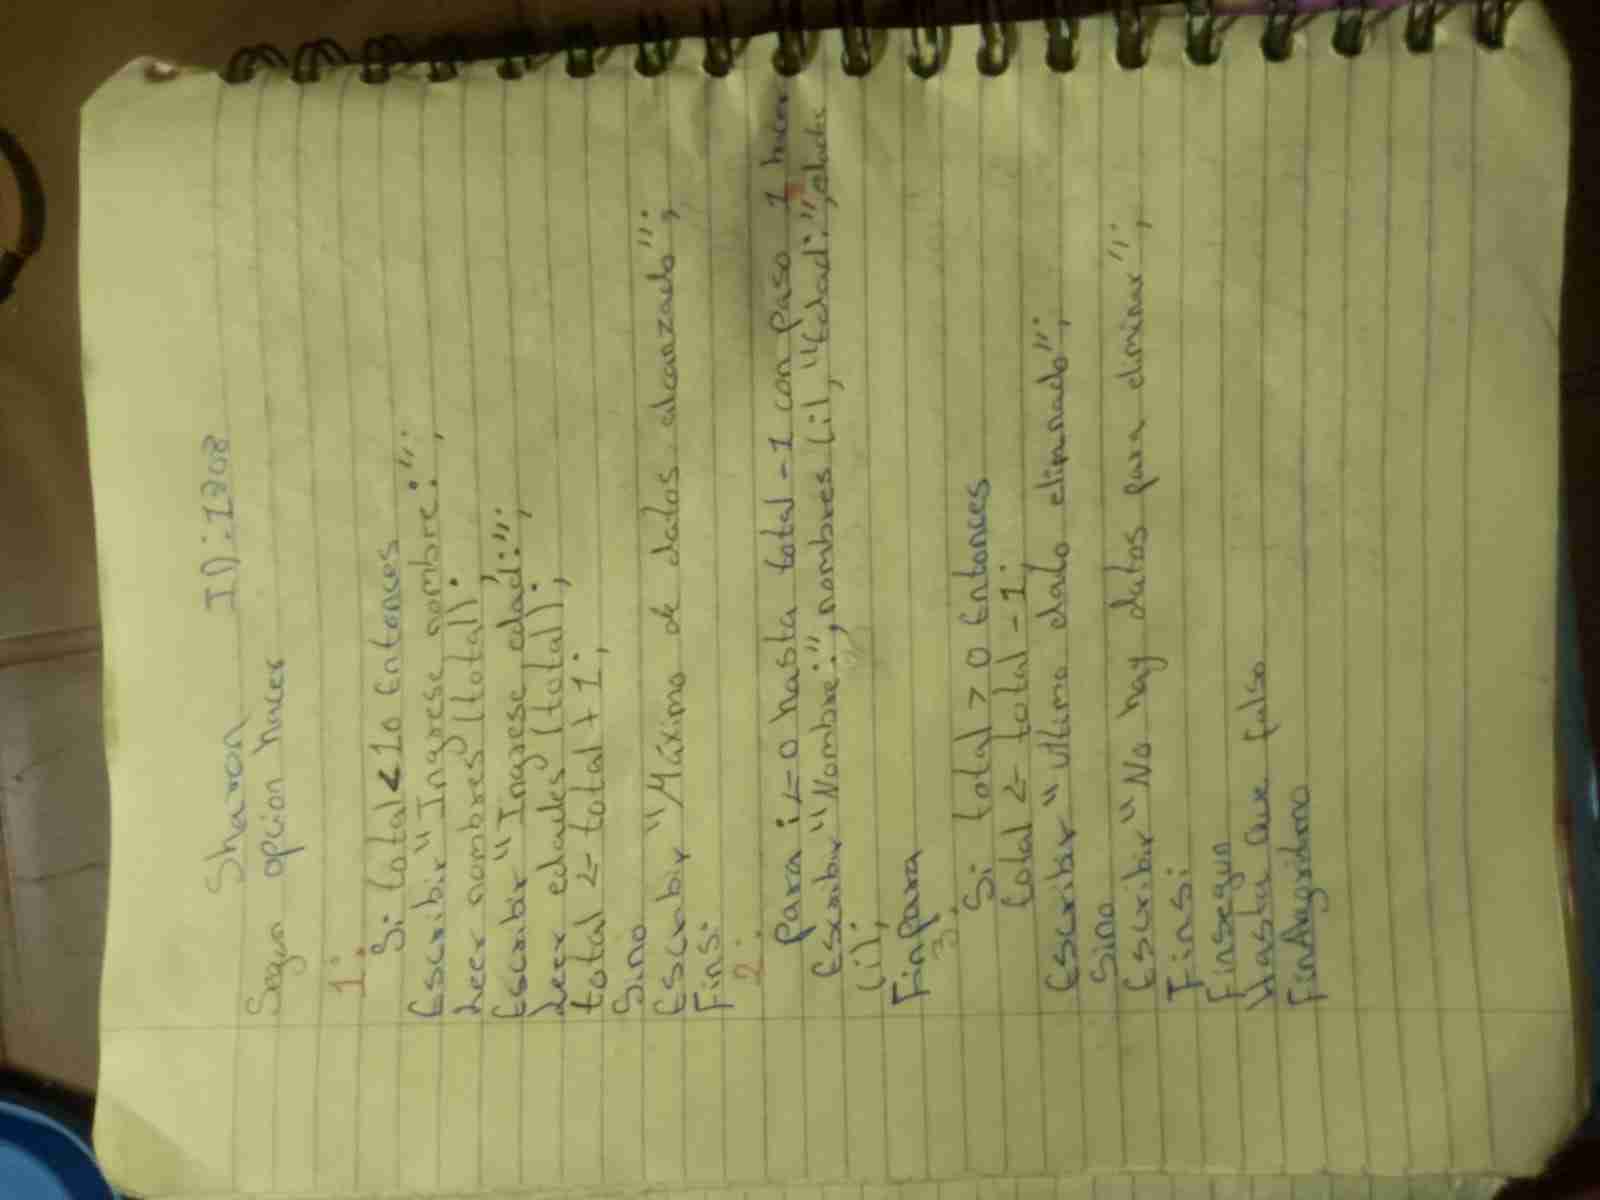 Sharon ID:1208
Segun opcion hacer
1:
Si total < 10 Entonces
Escribir "Ingrese nombre:";
Leer nombres [total];
Escribir "Ingrese edad:";
Leer edades [total];
total <- total + 1;
Sino
Escribir "Máximo de datos alcanzado";
Finsi
2:
Para i <- 0 hasta total - 1 con paso 1 hacer
Escribir "Nombre:", nombres [i], "Edad:",
[i];
Finpara
3:
Si total > 0 Entonces
total <- total - 1;
Escribir "ultimo dato eliminado";
Sino
Escribir "No hay datos para eliminar";
Finsi
Finsegun
Hasta Que falso